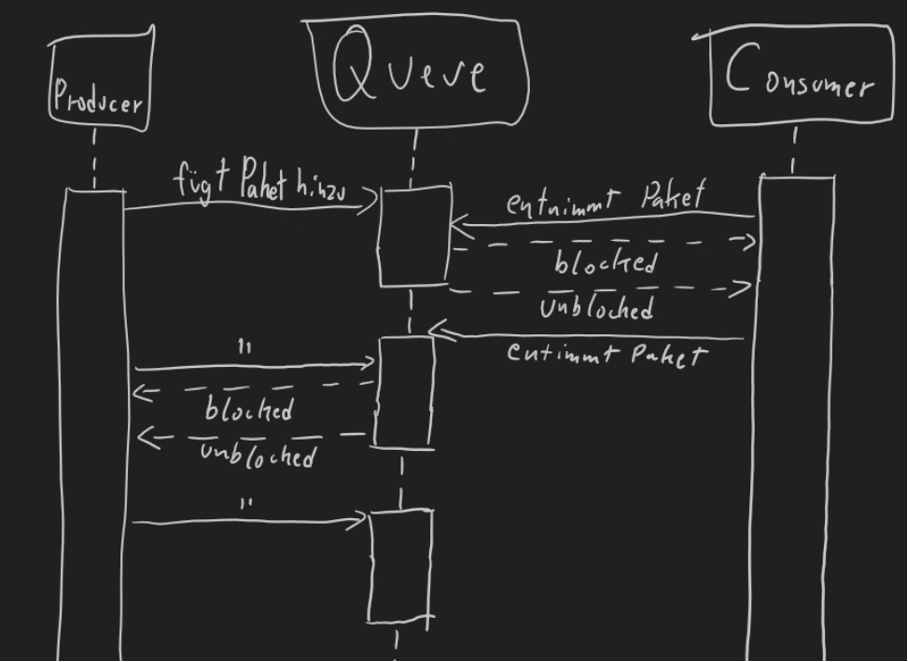 Producer
Queue
Consumer
fügt Paket hinzu
entnimmt Paket
blocked
unblocked
entimmt Paket
"
blocked
unblocked
"